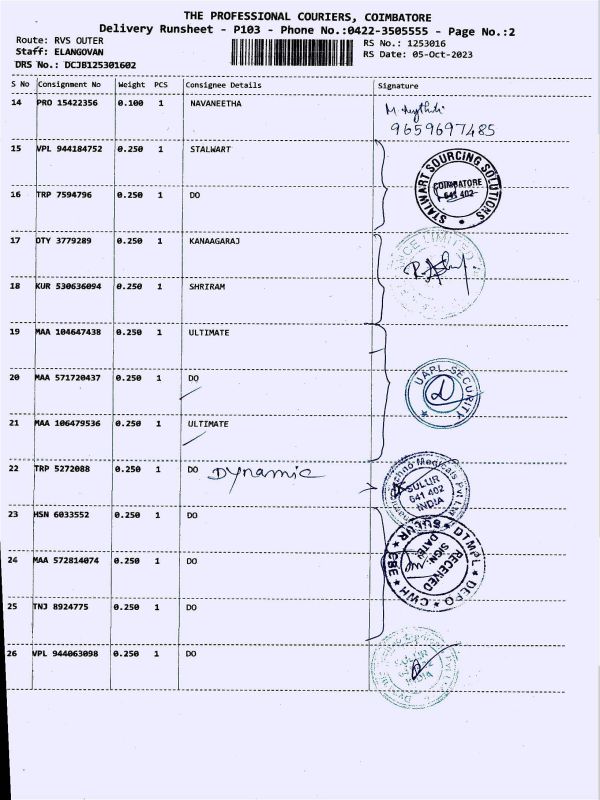 THE PROFESSIONAL COURIERS, COIMBATORE
Delivery Runsheet - P103 - Phone No.:0422-3505555 - Page No.:2
Route: RVS OUTER
RS No.: 1253016
Staff: ELANGOVAN
RS Date: 05-Oct-2023
DRS No.: DCJB125301602
S No Consignment No Weight PCS Consignee Details Signature
14 PRO 15422356 0.100 1 NAVANEETHA
9659697485
15 VPL 944184752 0.250 1 STALWART
STALWART SOURCING SOLUTIONS
COIMBATORE
641 402
16 TRP 7594796 0.250 1 DO
17 DTY 3779289 0.250 1 KANAAGARAJ
LIMITED
18 KUR 530636094 0.250 1 SHRIRAM
19 MAA 104647438 0.250 1 ULTIMATE
20 MAA 571720437 0.250 1 DO
UAPL SECURITY
21 MAA 106479536 0.250 1 ULTIMATE
22 TRP 5272088 0.250 1 DO Dynamic
Medicals Pvt Ltd
SULUR
641 402
INDIA
23 HSN 6033552 0.250 1 DO
DTMPL * DEPO * CWH * CBE * SULUR
RECEIVED
SIGN:
DATE:
24 MAA 572814074 0.250 1 DO
25 TNJ 8924775 0.250 1 DO
26 VPL 944063098 0.250 1 DO
SULUR
INDIA